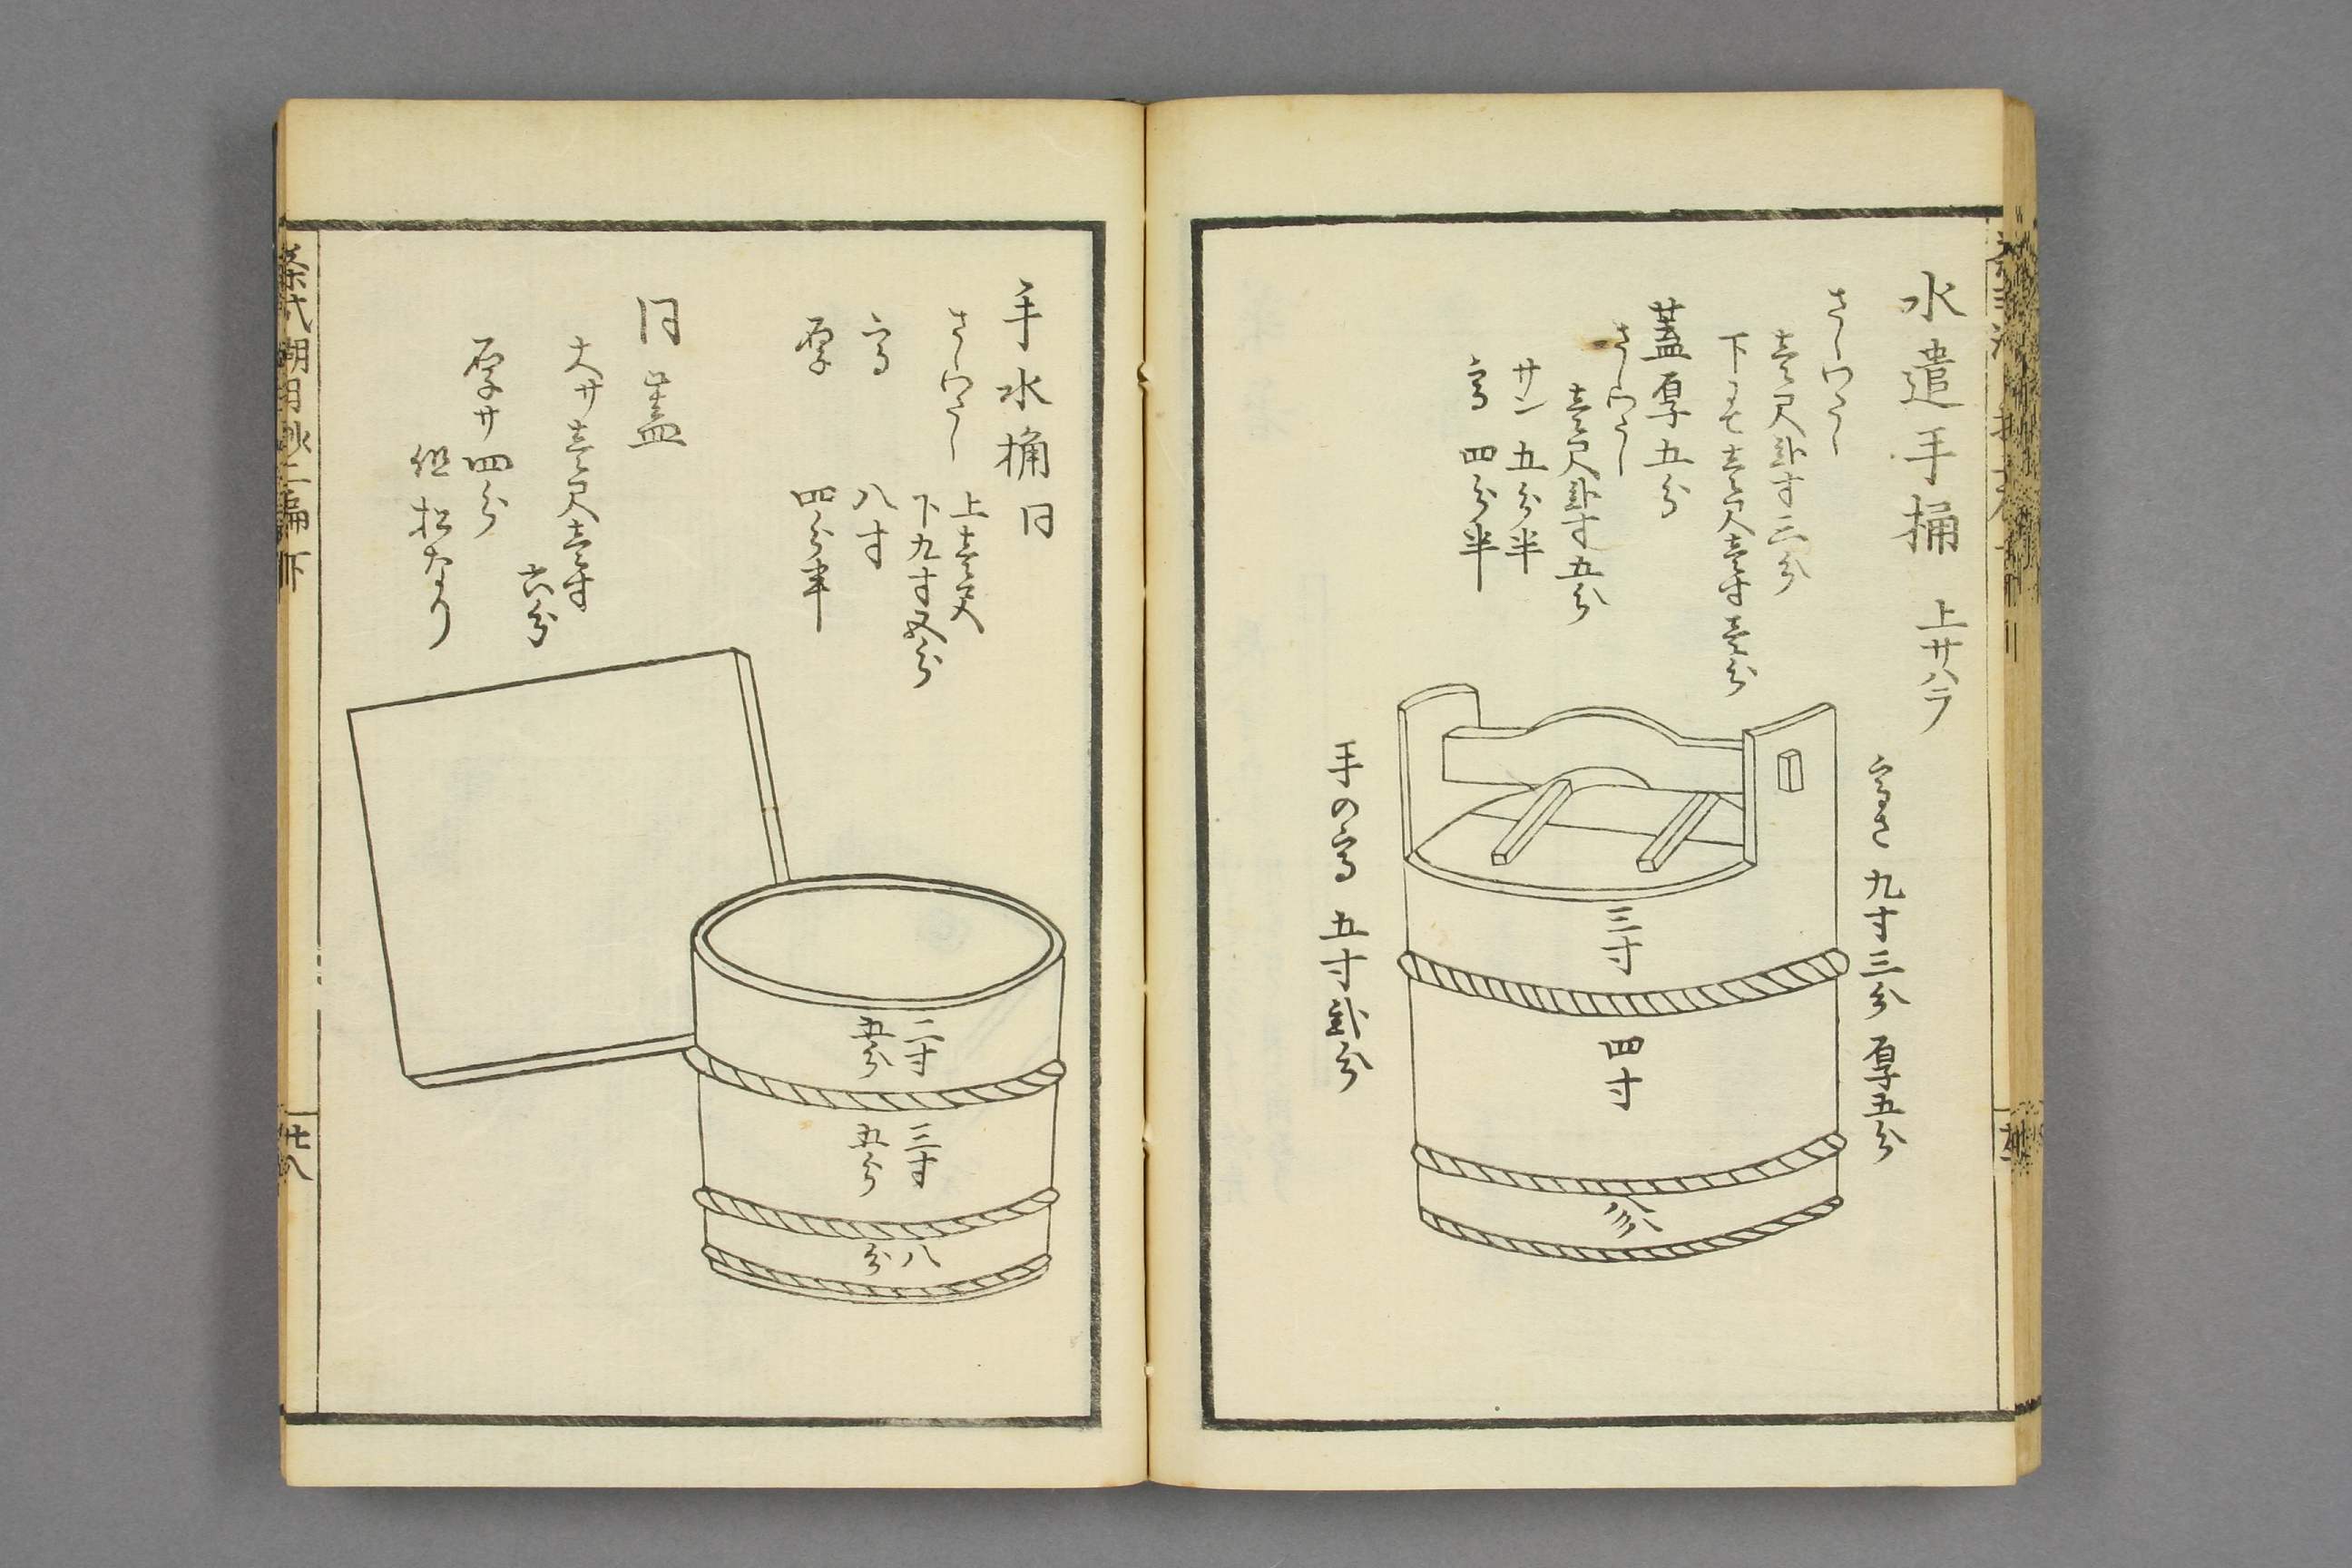 水遣手桶 上サハラ
さしわたし
壹尺貳寸三分
下ニて壹尺壹寸壹分
蓋厚五分
さしわたし
壹尺貳寸五分
サン 五分半
高 四分半
高さ 九寸三分 厚五分
三寸
四寸
八分
手の高 五寸貳分
手水桶 同
さしわたし 上壹尺
下九寸
高 八寸
厚 四分半
同 蓋
大サ壹尺壹寸
六分
厚サ四分
但松なり
二寸
五分
三寸
五分
八
分
茶式湖月抄二編 下
廿八